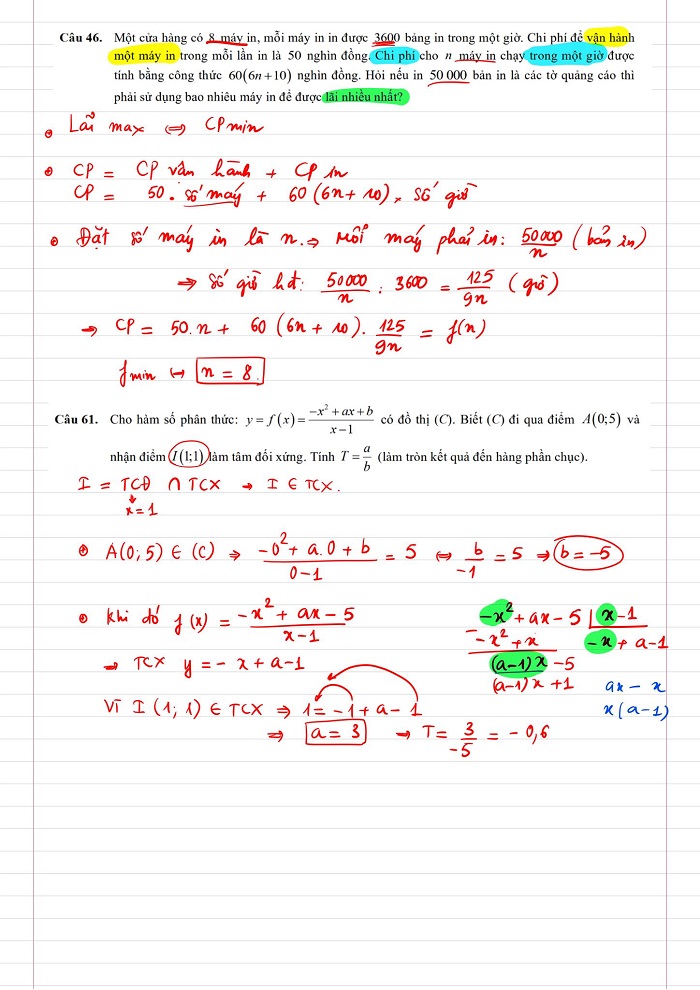 Câu 46. Một cửa hàng có 8 máy in, mỗi máy in in được 3600 bảng in trong một giờ. Chi phí để vận hành
một máy in trong mỗi lần in là 50 nghìn đồng. Chi phí cho n máy in chạy trong một giờ được
tính bằng công thức 60(6n+10) nghìn đồng. Hỏi nếu in 50 000 bản in là các tờ quảng cáo thì
phải sử dụng bao nhiêu máy in để được lãi nhiều nhất?
• Lãi max ⇔ CP min
• CP = CP vận hành + CP in
CP = 50 . số máy + 60(6n+10) x số giờ
• Đặt số máy in là n. ⇒ Mỗi máy phải in: 50000/n (bản in)
→ số giờ hđ: 50000/n : 3600 = 125/9n (giờ)
→ CP = 50.n + 60(6n+10). 125/9n = f(n)
f min ↔ n = 8.
Câu 61. Cho hàm số phân thức: y = f(x) = (-x²+ax+b)/(x-1) có đồ thị (C). Biết (C) đi qua điểm A(0;5) và
nhận điểm I(1;1) làm tâm đối xứng. Tính T = a/b (làm tròn kết quả đến hàng phần chục).
I = TCĐ ∩ TCX → I ∈ TCX.
↓
x=1
• A(0;5) ∈ (C) ⇒ (-0²+a.0+b)/(0-1) = 5 ⇔ b/-1 = 5 ⇒ b = -5
• Khi đó f(x) = (-x²+ax-5)/(x-1)
→ TCX y = -x+a-1
Vì I(1;1) ∈ TCX ⇒ 1 = -1+a-1
⇒ a = 3 → T = 3/-5 = -0,6
-x²+ax-5 | x-1
-x²+x | -x+a-1
(a-1)x-5
(a-1)x+1
ax-x
x(a-1)